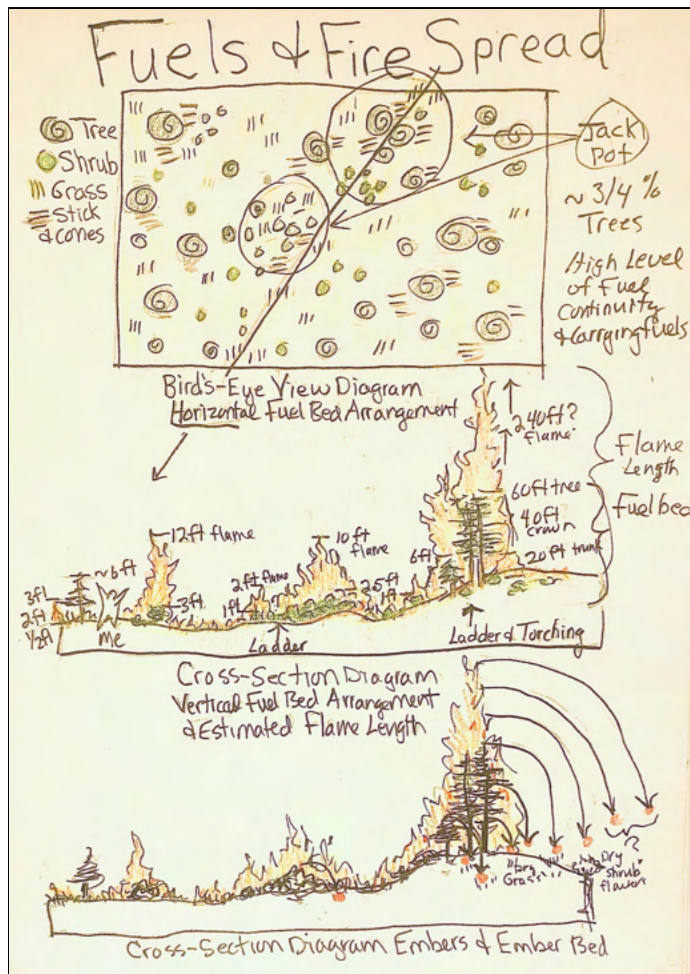 Fuels & Fire Spread
Tree
Shrub
Grass
Stick
& cones
Jack
Pot
~ 3/4 %
Trees
High Level
of Fuel
Continuity
& Carrying fuels
Bird's-Eye View Diagram
Horizontal Fuel Bed Arrangement
240ft?
flame
Flame
Length
60ft tree
Fuel bed
40ft
crown
20ft trunk
12ft flame
10ft
flame
6ft
~6ft
2ft flame
3ft
2ft
1/2ft
3ft
1ft
2.5ft
1ft
Me
Ladder
Ladder & Torching
Cross-Section Diagram
Vertical Fuel Bed Arrangement
& Estimated Flame Length
?
Dry
Grass
Dry
shrub
flowers
Cross-Section Diagram Embers & Ember Bed